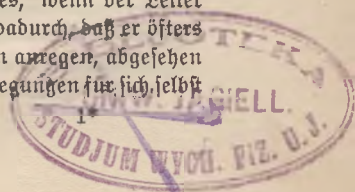 es, wenn der Leiter
dadurch, daß er öfters
n anregen, abgesehen
egungen für sich selbst
1*
JAGIELL.
STUDJUM WYCH. FIZ. U.J.